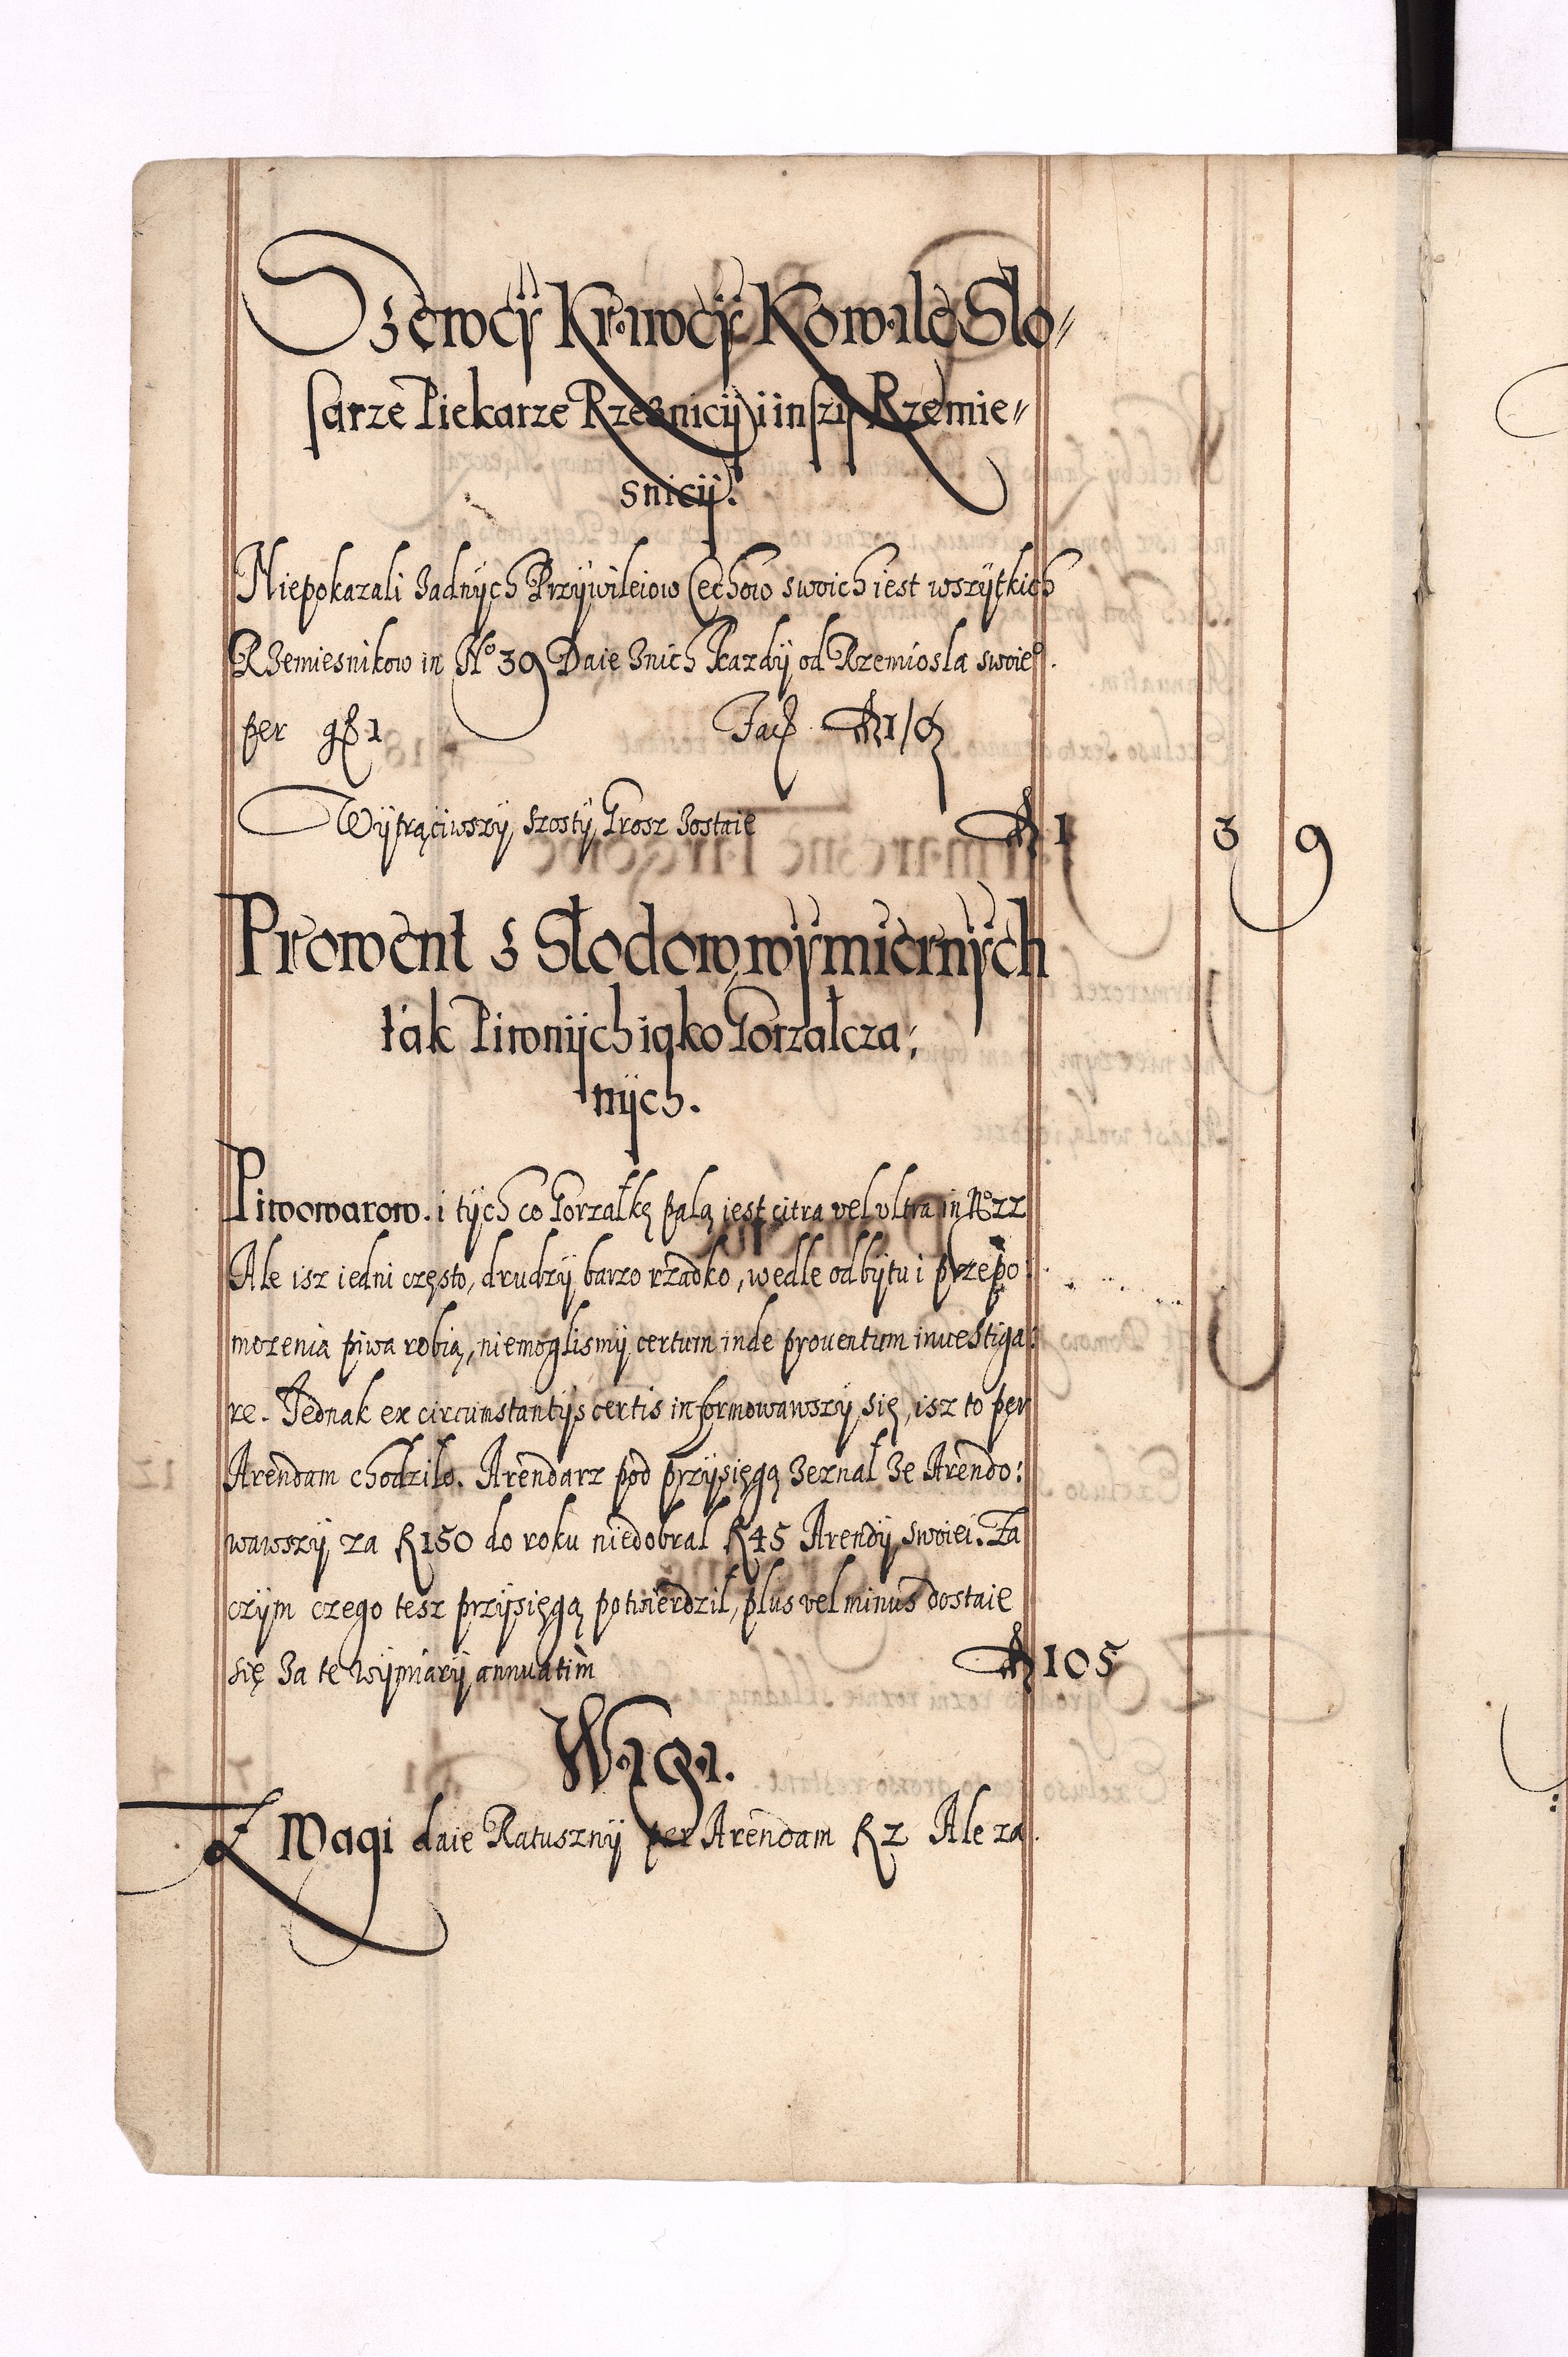 Szewcÿ Krawcÿ Kowale Slo⸗
sarze Piekarze Rzeznicÿ i inszÿ Rzemie⸗
snicÿ.
Niepokazali zadnÿch Przÿwileiow Cechow swoich iest wszÿtkich
Rzemiesnikow in No 39 Daie znich Kazdÿ od Rzemiosla swoieo.
per gß 1 Facß 1/9
Wÿtrąciwszÿ szostÿ Grosz zostaie 1 3 9
Prowent z Słodow wÿmiernÿch
tak Piwnÿch iako Gorzałcza:
nÿch.
Piwowarow. i tÿch co Gorzałkę palą iest citra vel vltra in No 22
Ale isz iedni często, drudzÿ barzo rzadko, wedle odbÿtu i przepo:
mozenia piwa robią, niemoglismÿ certum inde prouentum inuestiga:
re. Jednak ex circumstantÿs certis informowawszÿ się, isz to per
Arendam chodziło. Arendarz pod przÿsięgą zeznał ze Arendo:
wawszÿ za R 150 do roku niedobrał R 45 Arendÿ swoiei. Za
czÿm czego tesz przÿsięgą potwierdzil, plus vel minus dostaie
się za te wÿmiarÿ annuatim 105
Waga.
Z Wagi daie Ratusznÿ per Arendam R 2 Ale za